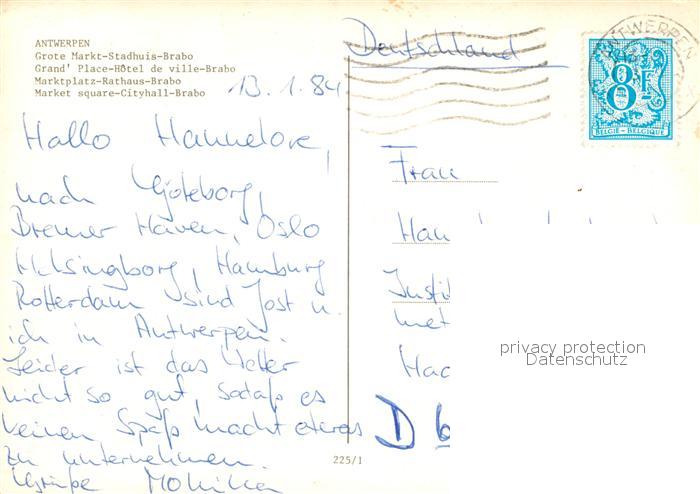 ANTWERPEN
Grote Markt-Stadhuis-Brabo
Grand' Place-Hôtel de ville-Brabo
Marktplatz-Rathaus-Brabo
Market square-Cityhall-Brabo
13.1.84
Hallo Hannelore,
nach Göteborg,
Bremer Haven, Oslo
Helsingborg, Hamburg
Rotterdam sind Jost u.
ich in Antwerpen.
Leider ist das Wetter
nicht so gut, sodaß es
keinen Spaß macht etwas
zu unternehmen.
Grüße Monika
225/1
Deutschland
ANTWERPEN
8F
BELGIË-BELGIQUE
Frau
Han
Justi
met
Hac
D 6
privacy protection
Datenschutz